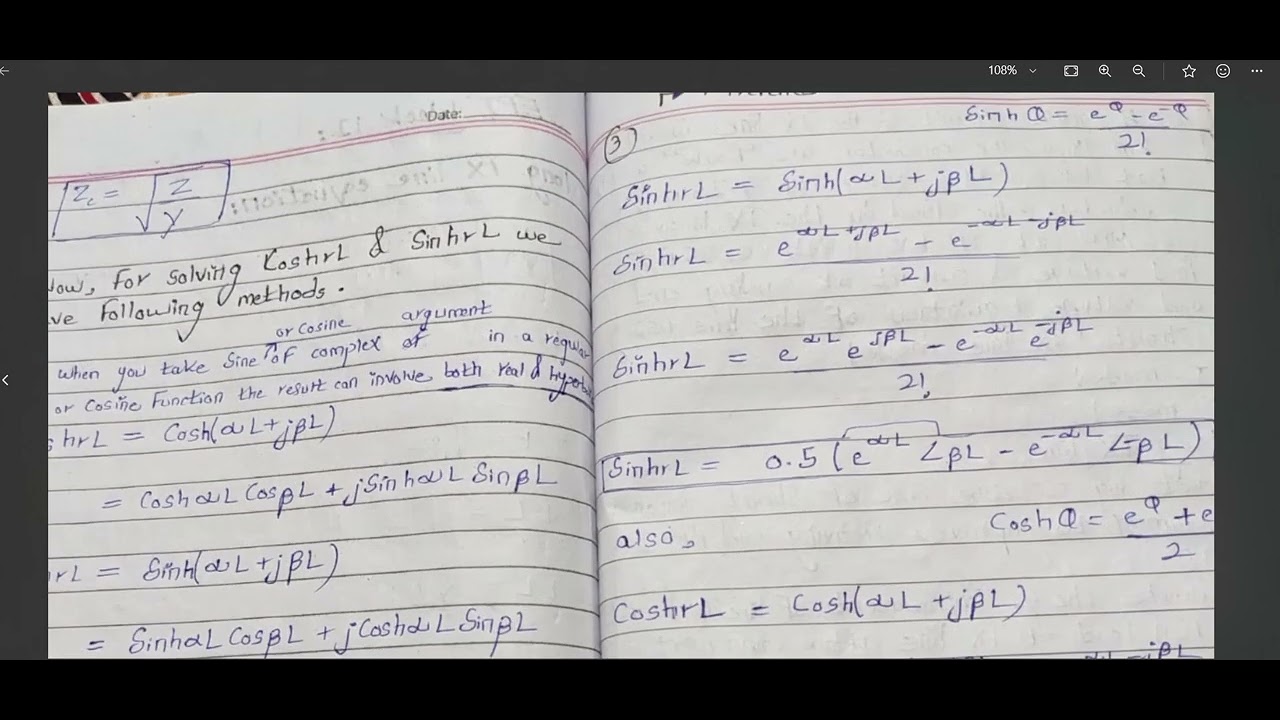 108%
Date:
Zc = √Z/Y
Now, For solving CoshrL & SinhrL we
ve following methods.
or cosine argument
when you take Sine of complex of in a regular
or Cosine Function the result can involve both real &
hrL = Cosh(αL+jβL)
= CoshαL CosβL + jSinhαL SinβL
rL = Sinh(αL+jβL)
= SinhαL CosβL + jCoshαL SinβL
3
Sinh Q = e^Q - e^-Q / 2!
SinhrL = Sinh(αL+jβL)
SinhrL = e^αL+jβL - e^-αL-jβL / 2!
SinhrL = e^αL e^jβL - e^-αL e^-jβL / 2!
SinhrL = 0.5 (e^αL ∠βL - e^-αL ∠-βL)
also,
Cosh Q = e^Q + e / 2
CoshrL = Cosh(αL+jβL)